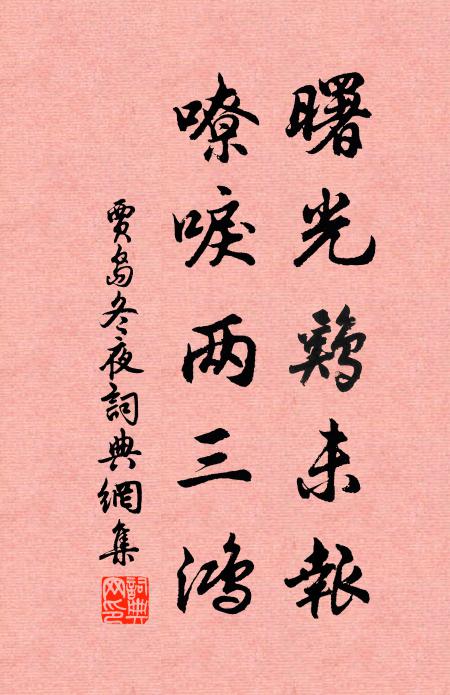 曙光鷄未報
嘹唳两三鸿
賈島冬夜詞典網集
詞典网印